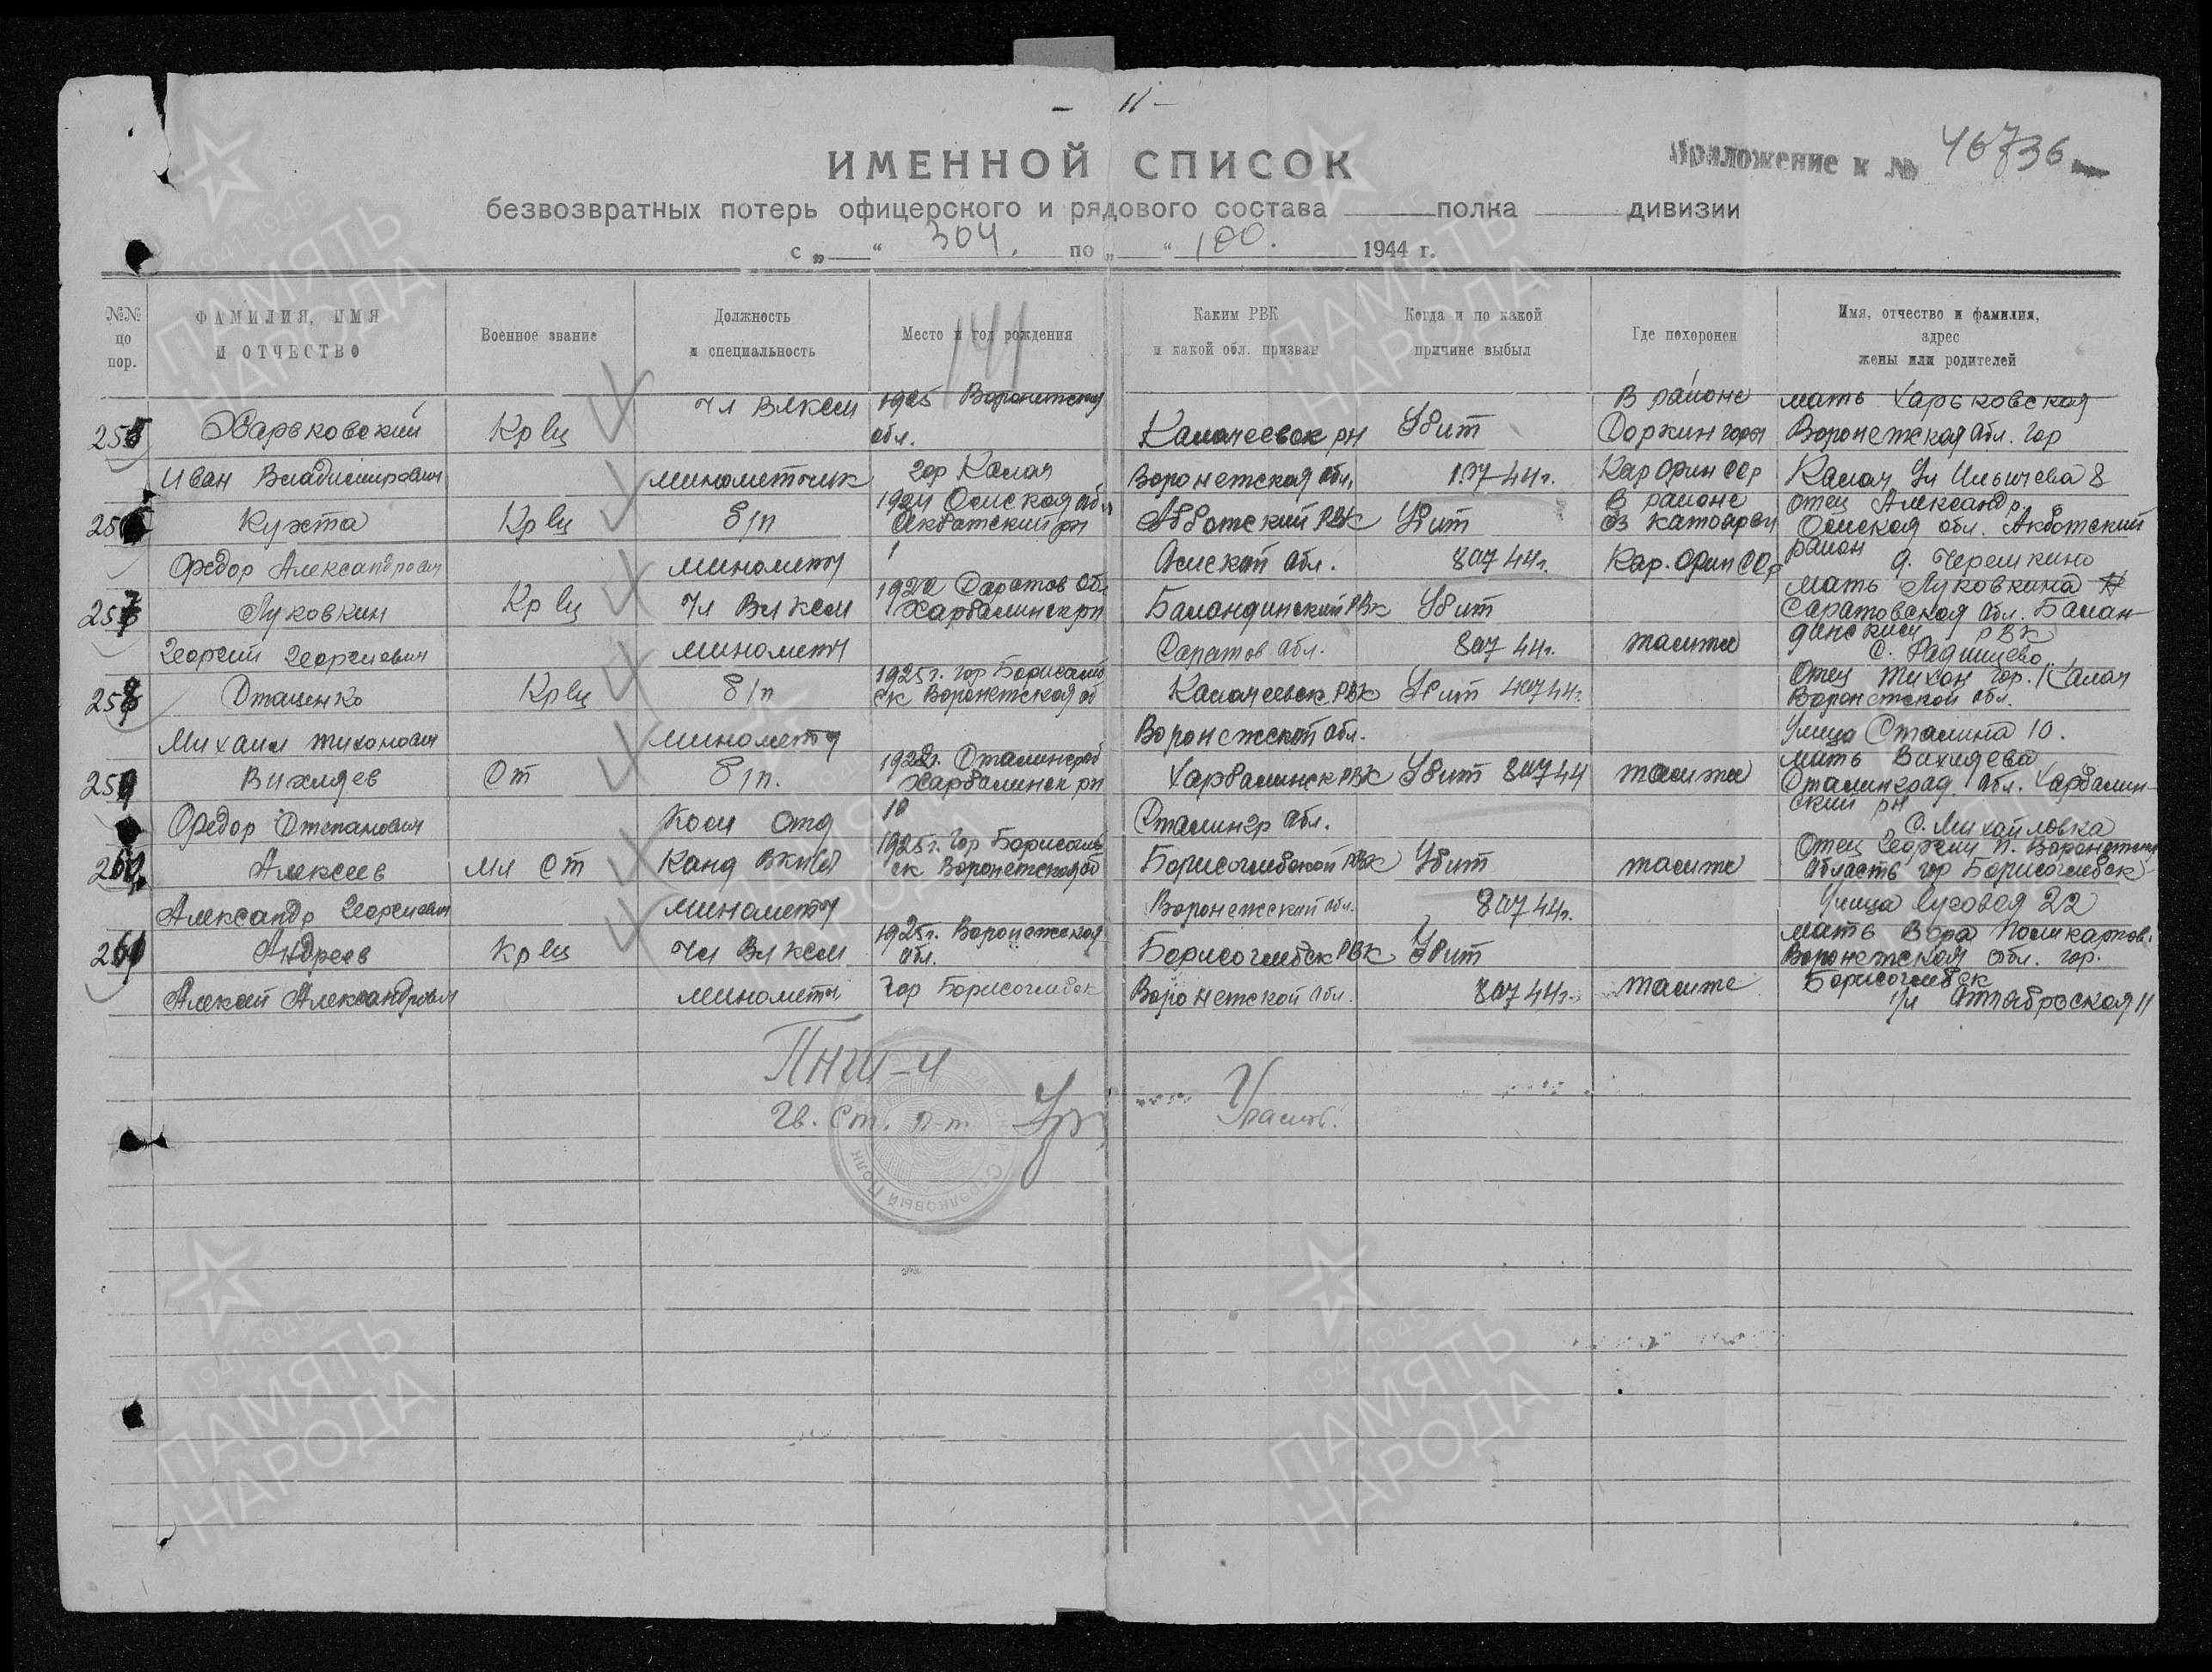 - 11 -
ИМЕННОЙ СПИСОК
Приложение к № 46736
безвозвратных потерь офицерского и рядового состава ____ полка ____ дивизии
с „__“ 304. по „__“ 100. 1944 г.
№№ по пор.
ФАМИЛИЯ, ИМЯ И ОТЧЕСТВО
Военное звание
Должность и специальность
Место и год рождения
Каким РВК и какой обл. призван
Когда и по какой причине выбыл
Где похоронен
Имя, отчество и фамилия, адрес жены или родителей
141
255 Харьковский Кр вц Чл ВЛКСМ 1925 Воронежская обл. Калачеевск рн Убит В районе мать Харьковская
Воронежская обл. гор
Иван Владимирович минометчик гор Калач Воронежская обл. 1.07-44г. Кар Фин ССР Калач Ул Ильичева 8
256 Кухта Кр вц б/п 1924 Омская обл Убит В районе отец Александр
Омская обл.
Федор Александрович минометч Омской обл. 8.07 44г. Кар. Фин ССР район д. Черемкино
257 Луковкин Кр вц Чл ВЛКСМ Саратов обл Баландинский РВК Убит мать Луковкина
Саратовская обл. Балан-
Георгий Георгиевич минометч Саратов обл. 8.07 44г. там же динский РВК
с. Радищево
258 Стаценко Кр вц б/п 1925г. гор Борисоглебск Воронежская об Калачеевск РВК Убит 4.07 44г. Отец Тихон гор. Калач
Воронежской обл.
Михаил Тихонович минометч Воронежской обл. Улица Сталина 10.
259 Вихляев Ст б/п. Сталинград Харбалинск рн Харбалинск РВК Убит 8.07 44 там же мать Вихляева
Сталинград обл. Харбалин-
ский рн
Федор Степанович Ком отд Сталингр обл. с. Михайловка
260 Алексеев Мл Ст Канд ВКП(б) 1925г. гор Борисоглебск Воронежская об Борисоглебский РВК Убит там же Отец Георгий П. Воронежская
область гор Борисоглебск
Александр Георгиевич минометч Воронежский обл. 8.07 44г. Улица Луговая 22
261 Андреев Кр вц Чл ВЛКСМ 1925г. Воронежская обл. Борисоглебск РВК Убит мать Вера Поликарпов.
Воронежская обл. гор.
Алексей Александрович минометч гор Борисоглебск Воронежской обл. 8.07 44г. там же Борисоглебск
ул Октябрьская 11
ПНШ-4
Гв. ст. л-т.
Стрелковый Полк
1941-1945
ПАМЯТЬ НАРОДА
1941-1945
ПАМЯТЬ НАРОДА
1941-1945
ПАМЯТЬ НАРОДА
1941-1945
ПАМЯТЬ НАРОДА